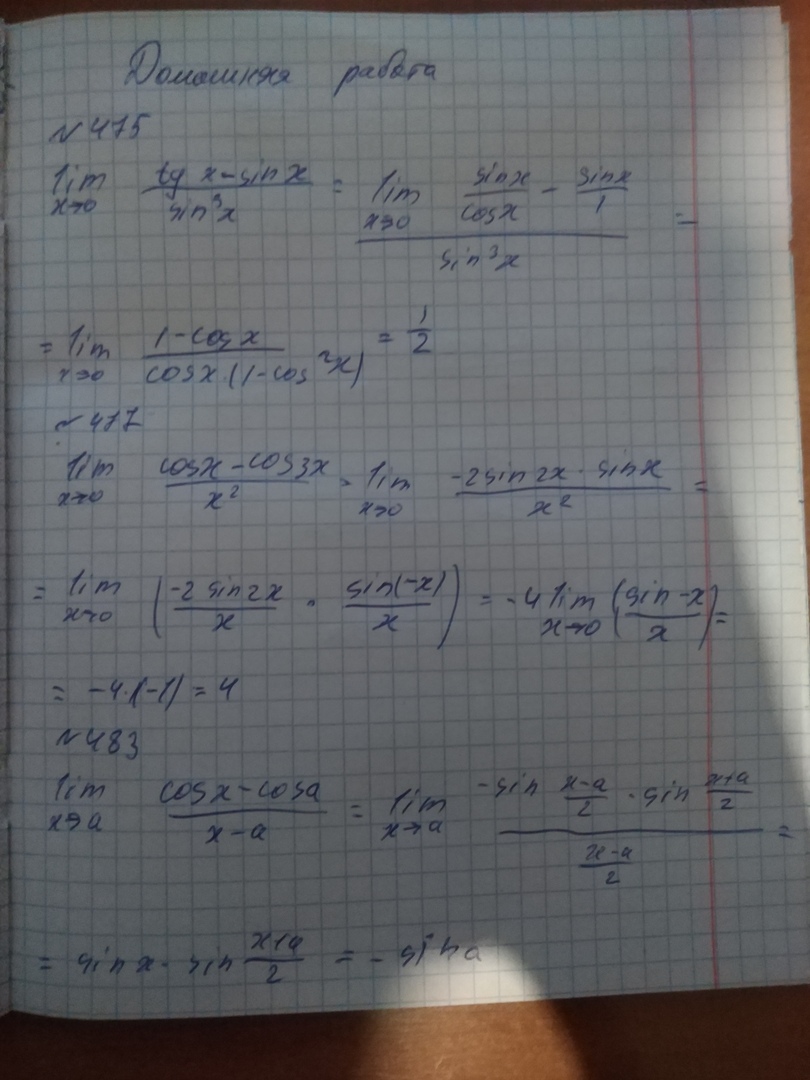 Домашняя работа
№ 475
lim x→0 (tg x - sin x)/(sin³x) = lim x→0 (sin x/cos x - sin x/1)/(sin³x) =
= lim x→0 (1 - cos x)/(cos x · (1 - cos²x)) = 1/2
№ 477
lim x→0 (cos x - cos 3x)/x² = lim x→0 (-2 sin 2x · sin x)/x² =
= lim x→0 (-2 sin 2x/x · sin(-x)/x) = -4 lim x→0 (sin -x/x) =
= -4·(-1) = 4
№ 483
lim x→a (cos x - cos a)/(x - a) = lim x→a (-sin (x-a)/2 · sin (x+a)/2)/((x-a)/2) =
= sin x · sin (x+a)/2 = - sin a